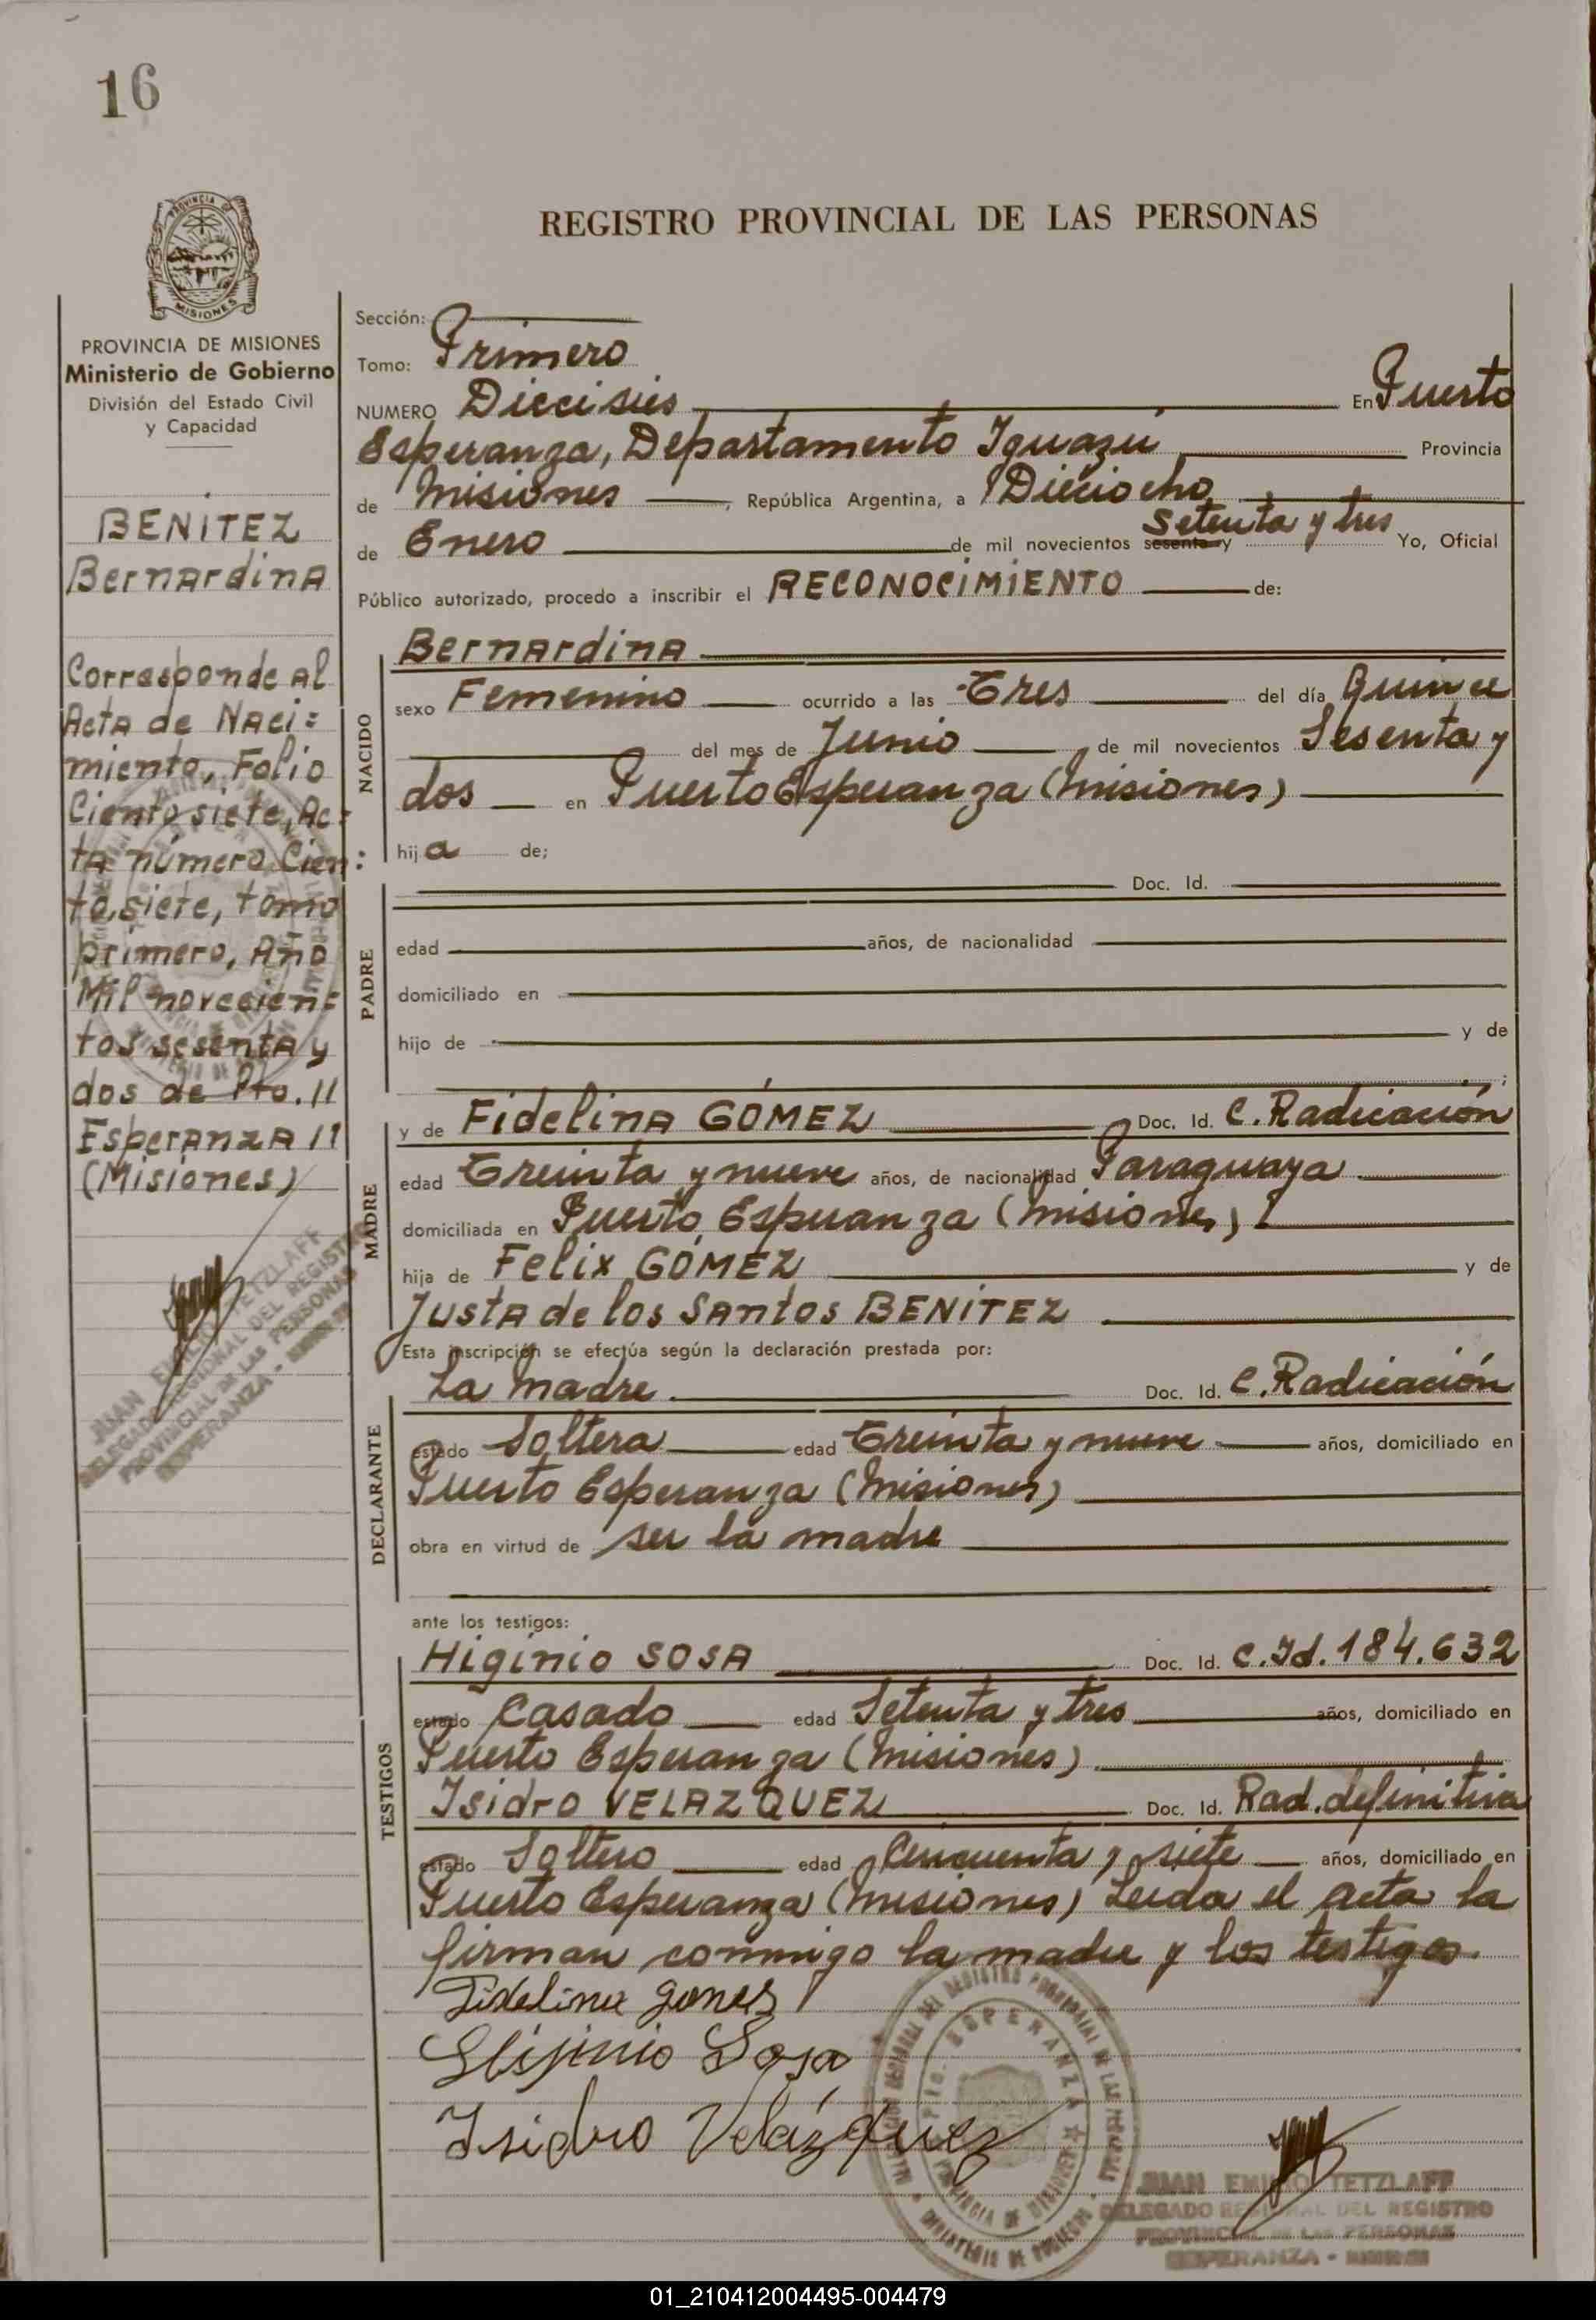 16
REGISTRO PROVINCIAL DE LAS PERSONAS
PROVINCIA DE MISIONES
Ministerio de Gobierno
División del Estado Civil
y Capacidad
BENITEZ
Bernardina
Corresponde al
Acta de Naci=
miento, Folio
Ciento siete, Ac=
ta número Cien=
to siete, tomo
primero, Año
Mil novecien=
tos sesenta y
dos de Pto. //
Esperanza //
(Misiones)
JUAN EMILIO TETZLAFF
DELEGADO REGIONAL DEL REGISTRO
PROVINCIAL DE LAS PERSONAS
ESPERANZA -
Sección:
Tomo: Primero
NUMERO Dieciseis En Puerto
Esperanza, Departamento Iguazú Provincia
de Misiones, República Argentina, a Dieciocho
de Enero de mil novecientos sesenta y Setenta y tres Yo, Oficial
Público autorizado, procedo a inscribir el RECONOCIMIENTO de:
NACIDO
Bernardina
sexo Femenino ocurrido a las Tres del día Quince
del mes de Junio de mil novecientos Sesenta y
dos en Puerto Esperanza (Misiones)
hija de;
PADRE
Doc. Id.
edad años, de nacionalidad
domiciliado en
hijo de y de
;
MADRE
y de Fidelina GÓMEZ Doc. Id. C. Radicación
edad Treinta y nueve años, de nacionalidad Paraguaya
domiciliada en Puerto Esperanza (Misiones)
hija de Felix GÓMEZ y de
Justa de los Santos BENITEZ
Esta inscripción se efectúa según la declaración prestada por:
DECLARANTE
La madre Doc. Id. C. Radicación
estado Soltera edad Treinta y nueve años, domiciliado en
Puerto Esperanza (Misiones)
obra en virtud de ser la madre
ante los testigos:
TESTIGOS
Higinio SOSA Doc. Id. C. Id. 184.632
estado Casado edad Setenta y tres años, domiciliado en
Puerto Esperanza (Misiones)
Isidro VELAZQUEZ Doc. Id. Rad. definitiva
estado Soltero edad Cincuenta y siete años, domiciliado en
Puerto Esperanza (Misiones) Leida el acta la
firman conmigo la madre y los testigos.
Fidelina gomes
Higinio Sosa
Isidro Velázquez
PTO. ESPERANZA
PROVINCIA DE MISIONES
JUAN EMILIO TETZLAFF
DELEGADO REGIONAL DEL REGISTRO
PROVINCIAL DE LAS PERSONAS
ESPERANZA -
01_210412004495-004479